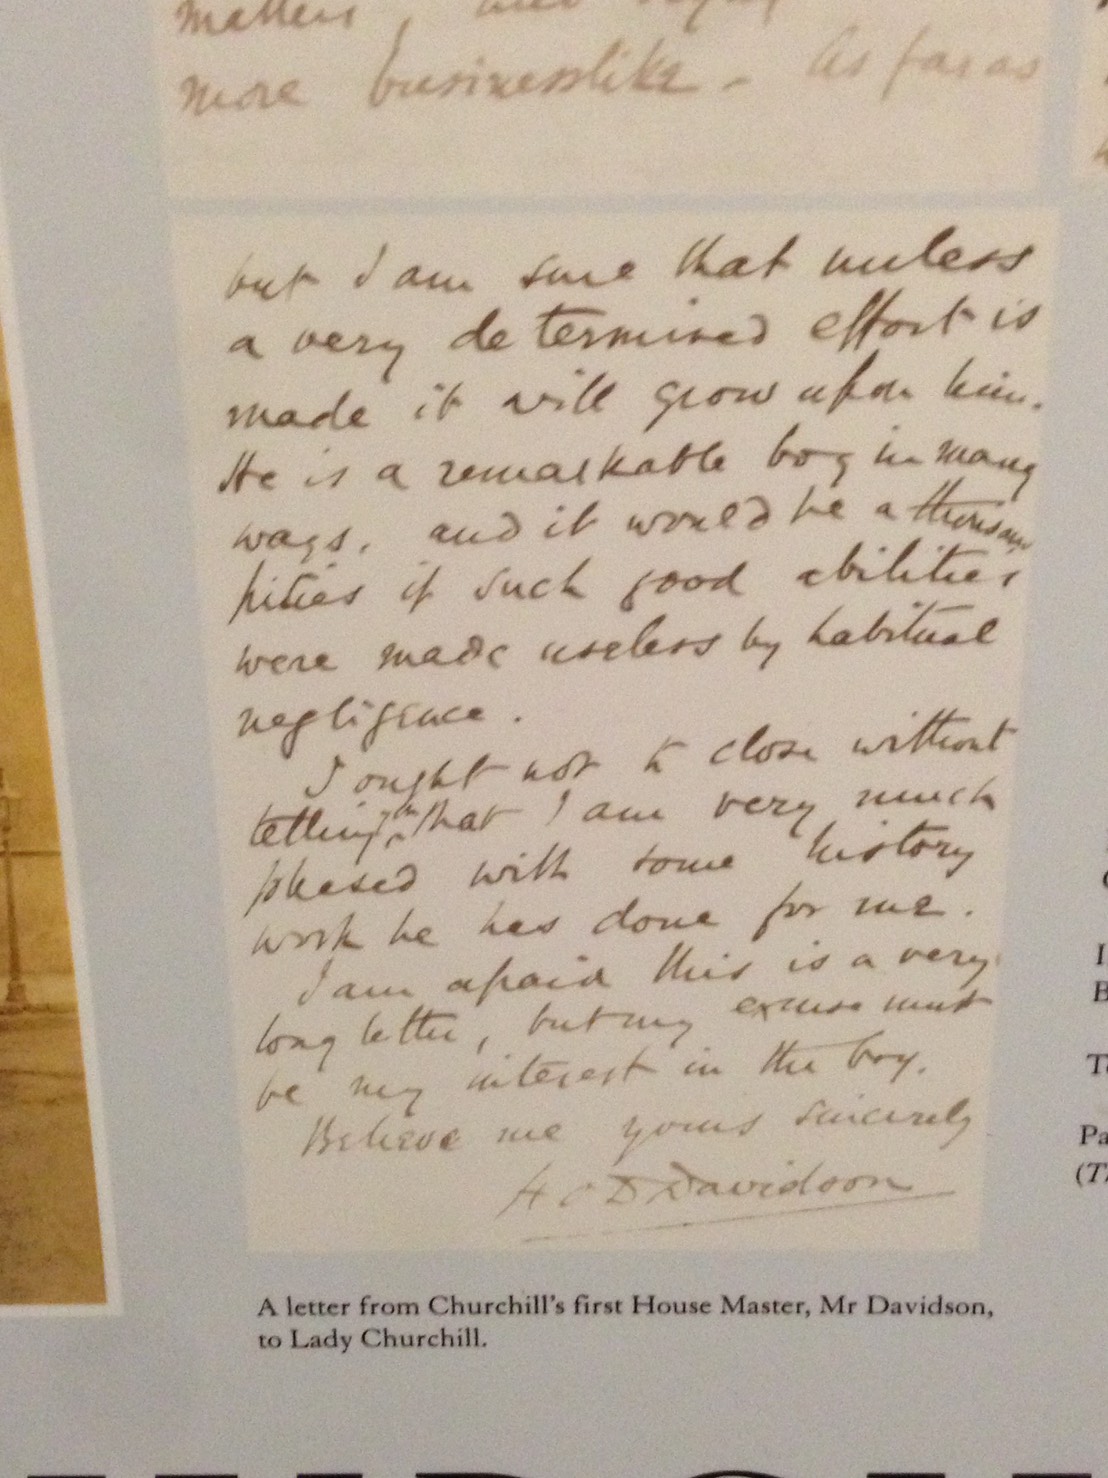 matters,
more businesslike - As far as
but I am sure that unless
a very determined effort is
made it will grow upon him.
He is a remarkable boy in many
ways, and it would be a thousand
pities if such good abilities
were made useless by habitual
negligence.
I ought not to close without
telling that I am very much
pleased with some history
work he has done for me.
I am afraid this is a very
long letter, but my excuse must
be my interest in the boy.
Believe me yours sincerely
H O D Davidson
A letter from Churchill's first House Master, Mr Davidson,
to Lady Churchill.